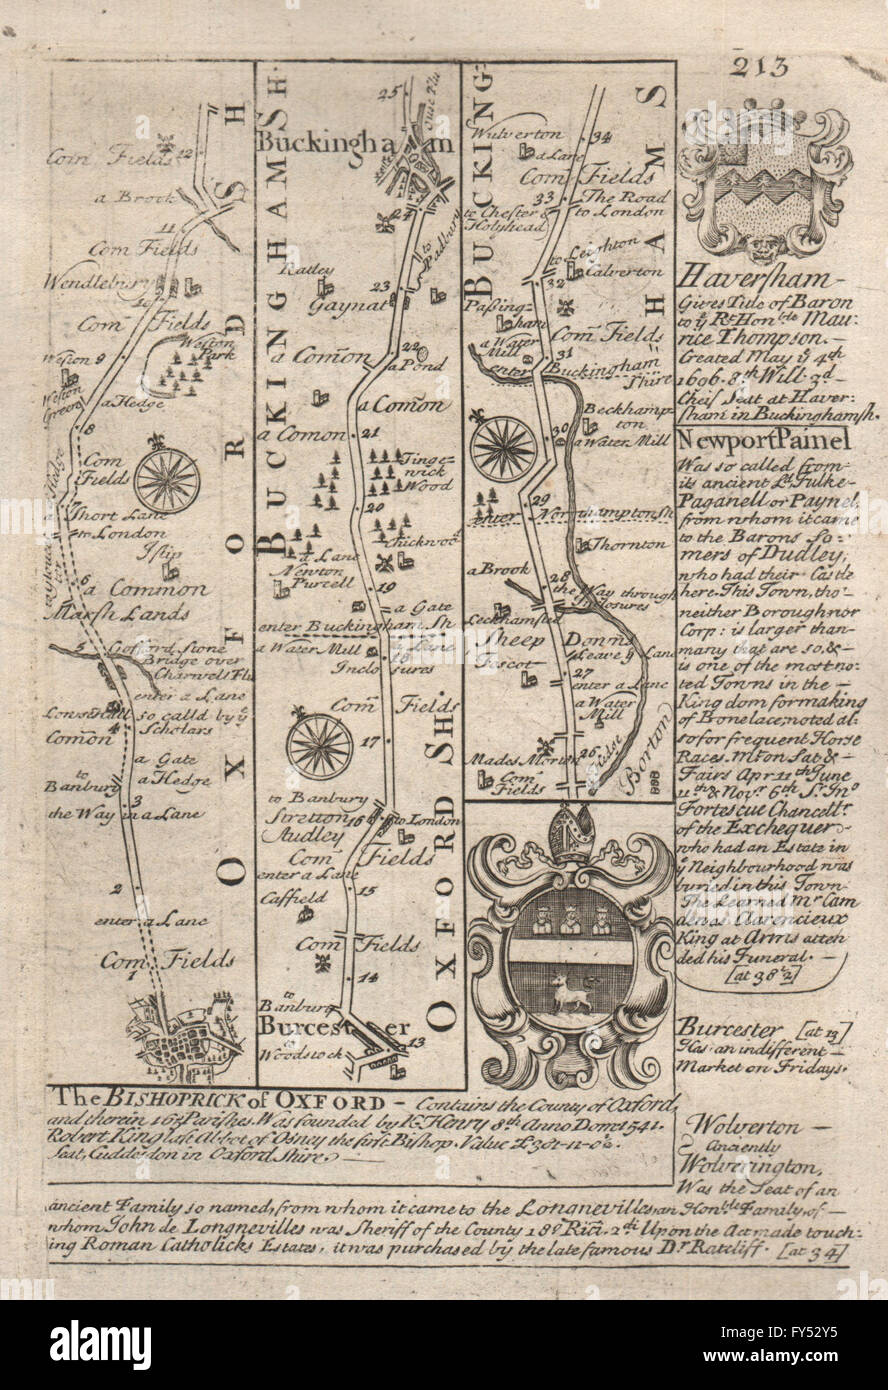 213
Haversham
Gives Title of Baron
to yͤ Rͭ Honᵇˡᵉ Mau:
rice Thompson.
Created May yͤ 4ᵗʰ
1696. 8ᵗʰ Will 3ᵈ
Cheif Seat at Haver:
sham in Buckinghamsh.
Newport Painel
Was so called from
its ancient Lᵈ Fulke
Paganell or Paynel,
from whom it came
to the Barons So=
mers of Dudley;
who had their Castle
here. This Town, tho'
neither Borough nor
Corp: is larger than
many that are so, &
is one of the most no=
ted Towns in the
Kingdom for making
of Bonelace; noted al=
so for frequent Horse
Races. Mᵗ on Sat &
Fairs Apr 11ᵗʰ June
11ᵗʰ & Novʳ 6ᵗʰ Sʳ Jnᵒ
Fortescue Chancellʳ
of the Exchequer
who had an Estate in
yͤ Neighbourhood was
buried in this Town
The Learned Mʳ Cam
den as Clarencieux
King at Arms atten
ded his Funeral.
[at 38'2]
Burcester [at 13]
Has an indifferent
Market on Fridays.
Wolverton
Anciently
Wolverington,
Was the Seat of an
ancient Family so named, from whom it came to the Longnevilles, an Honᵇˡᵉ Family, of
whom John de Longnevilles was Sheriff of the County 18° Rici. 2ᵈⁱ Upon the Act made touch=
ing Roman Catholicks Estates, it was purchased by the late famous Dʳ Ratcliff. [at 34]
The BISHOPRICK of OXFORD - Contains the County of Oxford,
and therein 195 Parishes. Was founded by K. Henry 8ᵗʰ Anno Dom 1541.
Robert King last Abbot of Osney the first Bishop. Value £381-11-0½
Seat, Cuddesdon in Oxford Shire.
OXFORDSH
Corn Fields
12
a Brook
11
Corn Fields
Wendlebury
10
Corn Fields
Weston 9
Weston Park
Weston Green
a Hedge
8
Corn Fields
a Hedge
7
a Short Lane
to London
Islip
6
a Common
Marsh Lands
5
Gosford Stone
Bridge over
Charwell Flu
enter a Lane
so calld by yͤ
Scholars
4
Common
a Gate
a Hedge
to Banbury
3
the Way in a Lane
2
enter a Lane
Corn Fields
1
BUCKINGHAMSH:
25
Ouse Flu
Buckingham
24
to Padbury
Ratley
23
Gaynat
22
a Common
a Pond
a Common
a Common
21
Tinge=
wick
Wood
20
Chickwood
a Lane
Newton
Purcell
19
a Gate
enter Buckingham Sh
a Water Mill
a Lane
18
Inclosures
Corn Fields
17
OXFORD SH:
to Banbury
Stretton
Audley
16
to London
Corn Fields
enter a Lane
15
Caffield
Corn Fields
14
to Banbury
Burcester
13
to Woodstock
BUCKINGHAMS
Wulverton
34
a Lane
Corn Fields
33
The Road
to London
to Chester &
Holyhead
to Leighton
Calverton
32
Passing=
ham
Corn Fields
a Water
Mill
31
enter Buckingham
Shire
Beckhamp=
ton
30
a Water Mill
29
enter Northampton Sh
Thornton
a Brook
28
the Way through
Inclosures
Leckhamsted
Sheep Downs
Leave yͤ Lane
Foscot
27
enter a Lane
a Water
Mill
Mades Morton
26
Corn
Fields
Ouse
Borton
BBB
alamy
alamy
Image ID: FY52Y5
www.alamy.com